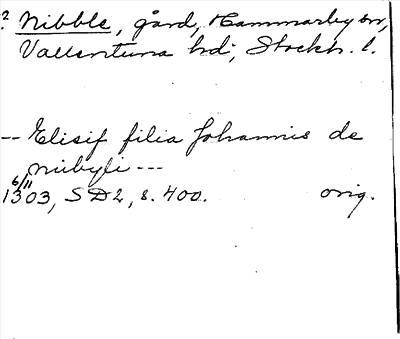 ? Nibble, gård, Hammarby sn,
Vallentuna hd, Stockh. l.
-- Elisif filia Johannis de
niibyli ---
6/11
1303, SD2, s. 400. orig.